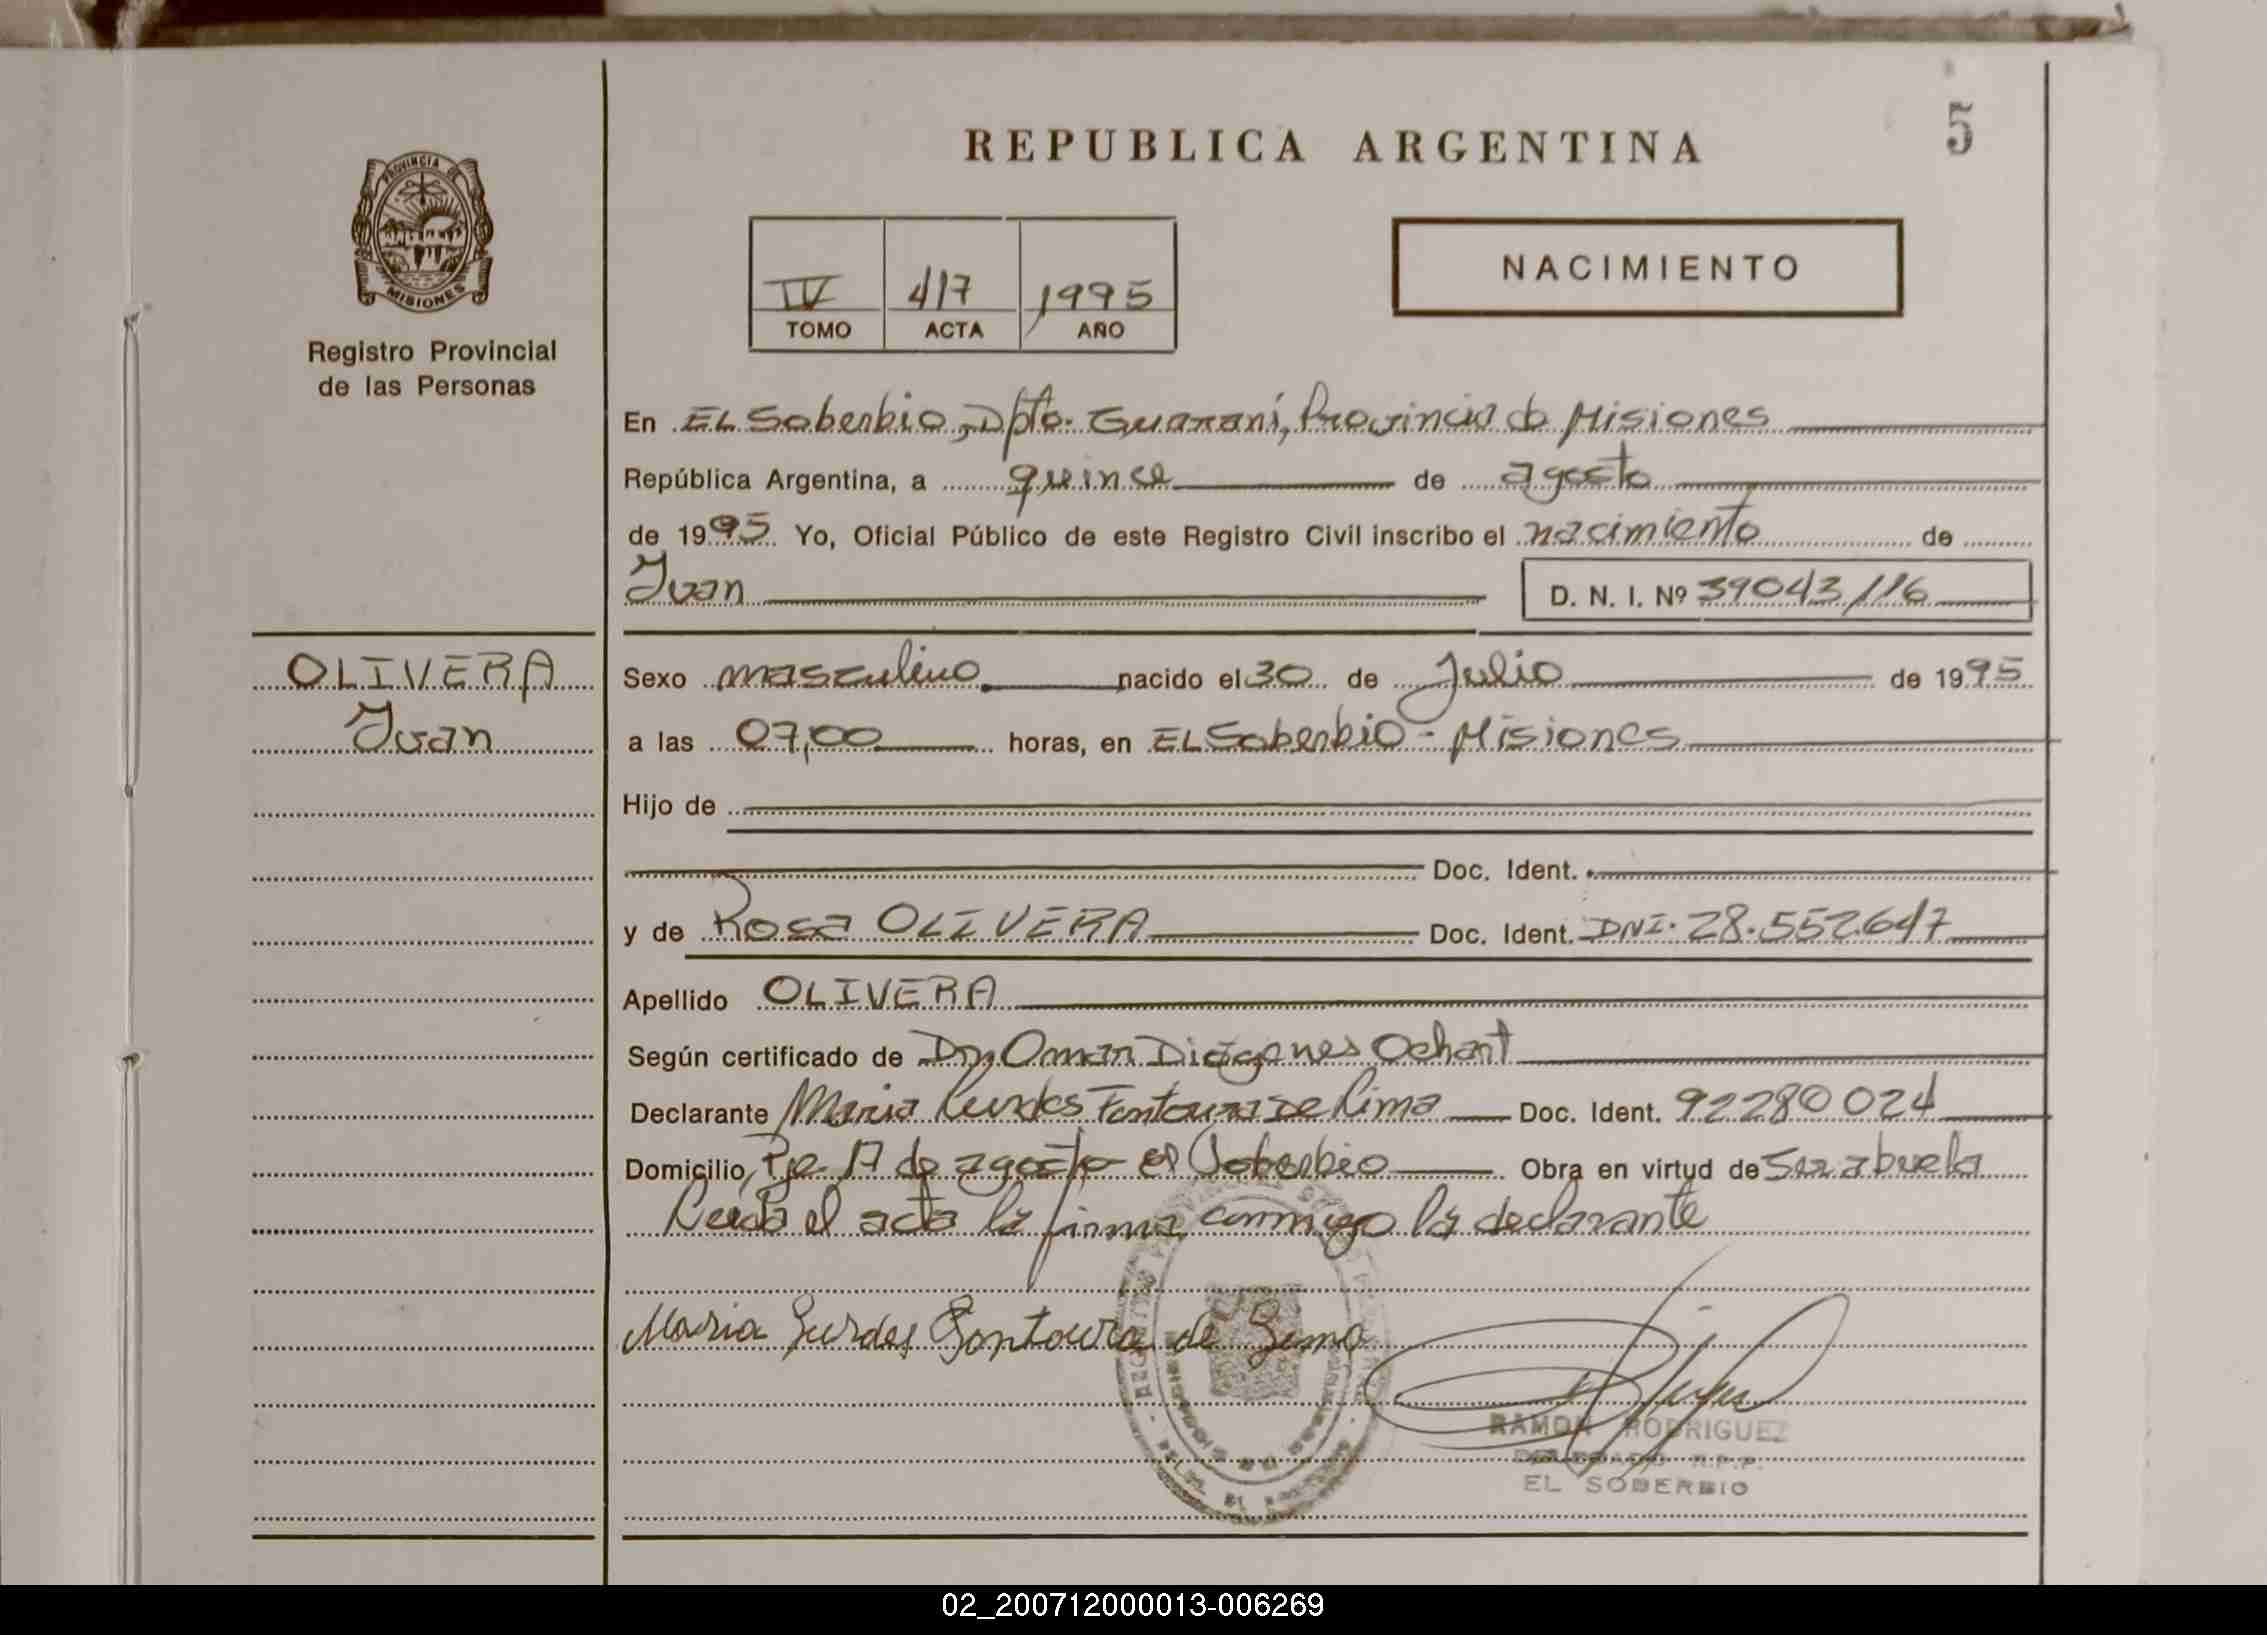 5
REPUBLICA ARGENTINA
PROVINCIA DE
MISIONES
Registro Provincial
de las Personas
IV 417 1995
TOMO ACTA AÑO
NACIMIENTO
En EL Soberbio, Dpto. Guaraní, Provincia de Misiones
República Argentina, a quince de agosto
de 1995 Yo, Oficial Público de este Registro Civil inscribo el nacimiento de
Ivan D. N. I. Nº 39043116
OLIVERA
Ivan
Sexo masculino nacido el 30 de Julio de 1995
a las 07,00 horas, en EL Soberbio - Misiones
Hijo de
Doc. Ident.
y de Rosa OLIVERA Doc. Ident. DNI. 28.552.647
Apellido OLIVERA
Según certificado de Dr. Omar Diógenes Ochart
Declarante Maria Lurdes Fontoura de Lima Doc. Ident. 92280024
Domicilio, Pje 17 de agosto el Soberbio Obra en virtud de Ser abuela
Leida el acta la firma conmigo la declarante
Maria Lurdes Fontoura de Lima
RAMON RODRIGUEZ
DELEGADO R.P.P.
EL SOBERBIO
02_200712000013-006269